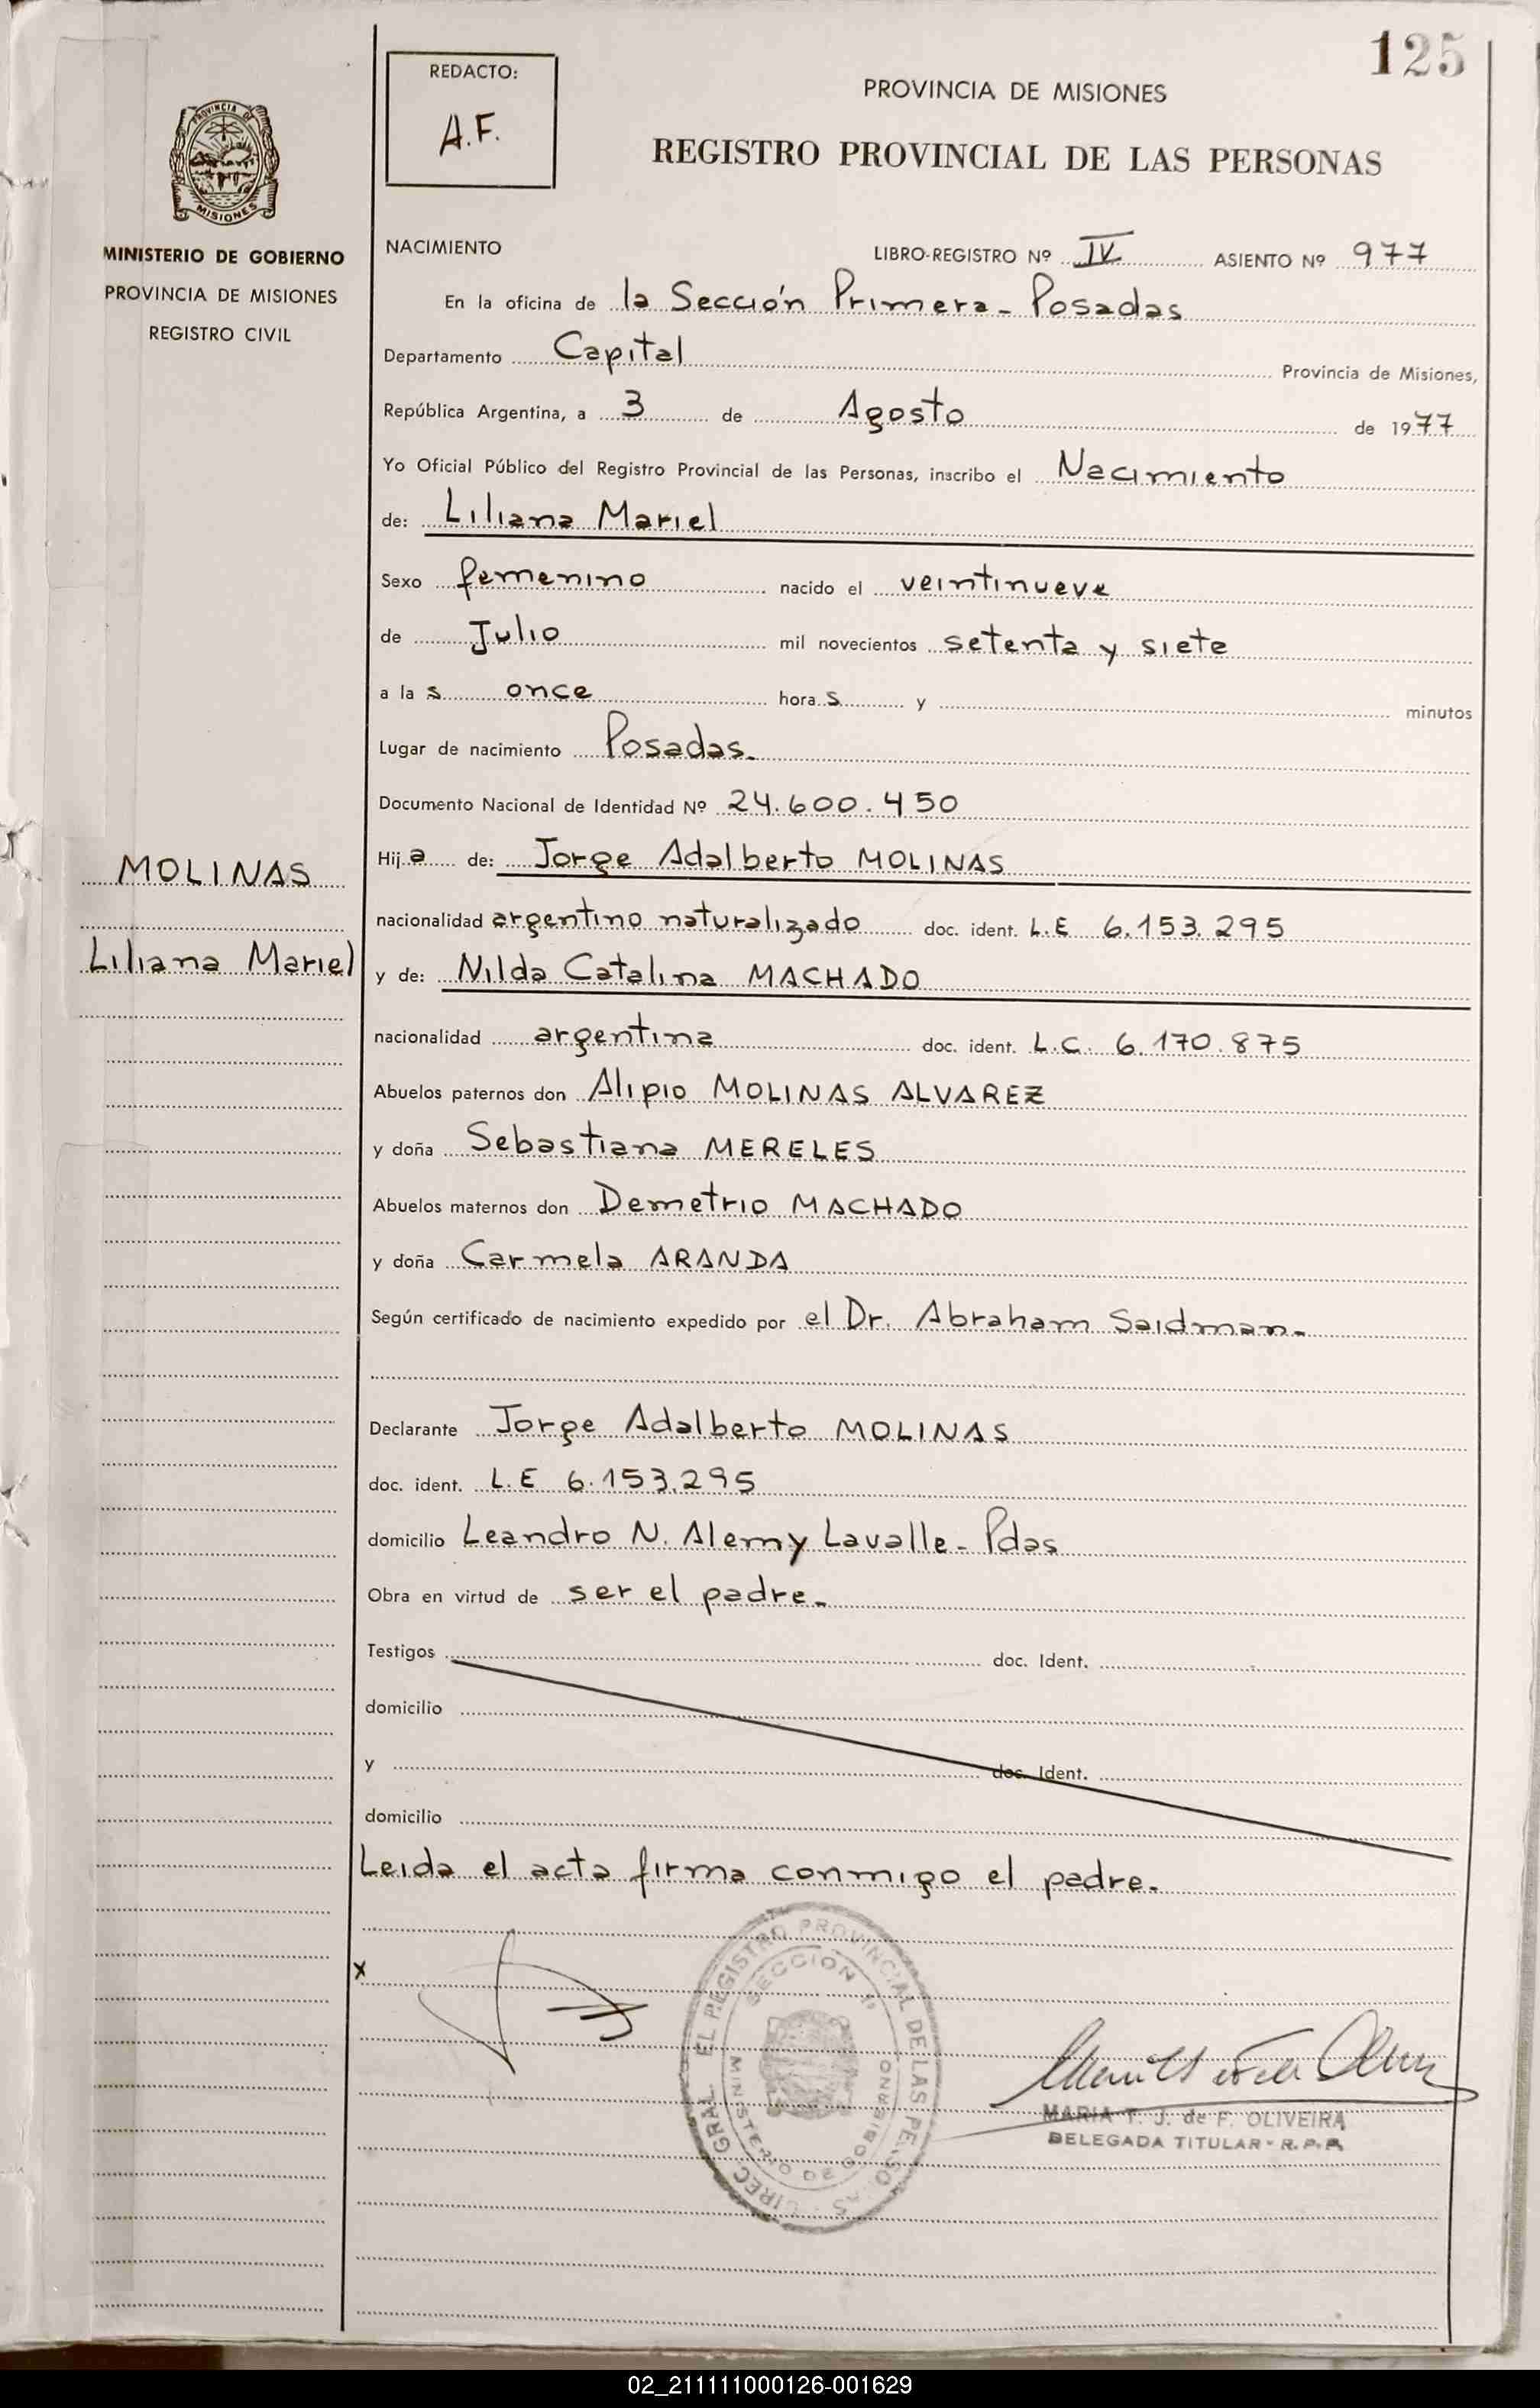 125
REDACTO:
A.F.
PROVINCIA DE MISIONES
REGISTRO PROVINCIAL DE LAS PERSONAS
PROVINCIA DE
MISIONES
MINISTERIO DE GOBIERNO
PROVINCIA DE MISIONES
REGISTRO CIVIL
NACIMIENTO LIBRO-REGISTRO Nº IV ASIENTO Nº 977
En la oficina de la Sección Primera - Posadas
Departamento Capital Provincia de Misiones,
República Argentina, a 3 de Agosto de 1977
Yo Oficial Público del Registro Provincial de las Personas, inscribo el Nacimiento
de: Liliana Mariel
Sexo femenino nacido el veintinueve
de Julio mil novecientos setenta y siete
a la s once hora s y minutos
Lugar de nacimiento Posadas.
Documento Nacional de Identidad Nº 24.600.450
MOLINAS
Liliana Mariel
Hij a de: Jorge Adalberto MOLINAS
nacionalidad argentino naturalizado doc. ident. L.E 6.153.295
y de: Nilda Catalina MACHADO
nacionalidad argentina doc. ident. L.C. 6.170.875
Abuelos paternos don Alipio MOLINAS ALVAREZ
y doña Sebastiana MERELES
Abuelos maternos don Demetrio MACHADO
y doña Carmela ARANDA
Según certificado de nacimiento expedido por el Dr. Abraham Saidman-
Declarante Jorge Adalberto MOLINAS
doc. ident. L.E 6.153.295
domicilio Leandro N. Alem y Lavalle - Pdas
Obra en virtud de ser el padre-
Testigos doc. Ident.
domicilio
y doc. Ident.
domicilio
Leida el acta firma conmigo el padre-
x
DIREC. GRAL. EL REGISTRO PROVINCIAL DE LAS PERSONAS
SECCION 1ª
MINISTERIO DE GOBIERNO
MARIA T. J. de F. OLIVEIRA
DELEGADA TITULAR - R.P.P.
02_211111000126-001629